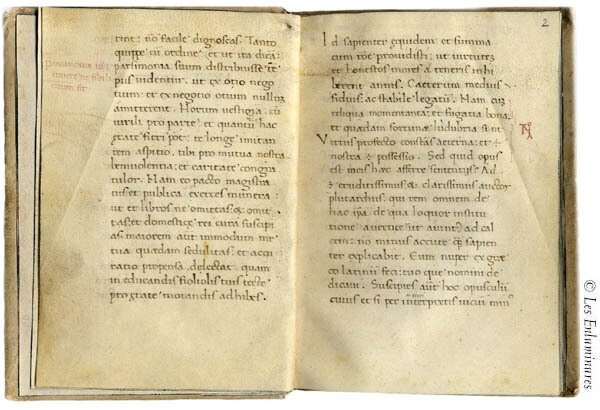 tint: nō facile dignoscas. Tanto
quippe cū ordine: et ut ita dicā:
parsimonia suum distribuisse tē
pus uidentur. ut ex otio nego
tium: et ex negotio otium nullum
amitterent. Horum uestigia cū
uirili pro parte: et quantū hac
etate fieri pōt: te longe imitan
tem aspitio. tibi pro mutua nostra
beniuolentia: et caritate congra
tulor. Nam eo pacto magistra
tus et publica exerces munera:
ut et libros ne omittas: &
tas, et domestice rei curā suscipi
as. maiorem aut immodum me
tua quedam sedulitas: et accu
ratio propensa delectat. quam
in educandis filiolis tuis recte
pro etate morandis adhibes.
2
Id sapienter equidem et summa
cum rōne prouidisti: ut uirtutes
et honestos mores a teneris inhi
berent annis. Caeterum medius
fidius ac stabile legatū. Nam cūc
reliqua momentanea: et fugatia bona:
et quaedam fortunae ludibria sint
Virtus profecto constās aeterna: et ÷
nostra ÷ possessio. Sed quid opus
est meas haec afferre sententias? Ad
÷ eruditissimus & clarissimus auctor
plutarchus. qui rem omnem de
hac ipā. de qua loquor institu
tione a uertice ut aiunt) ad cal
cem: nō minus accure sapien
ter explicabit. Eum nuper ex grae
co latinū feci: tuo que nomini de
dicaui. Suscipies aūt hoc opusculū
cuius et si per interpretis uicui min
© Les Enluminures